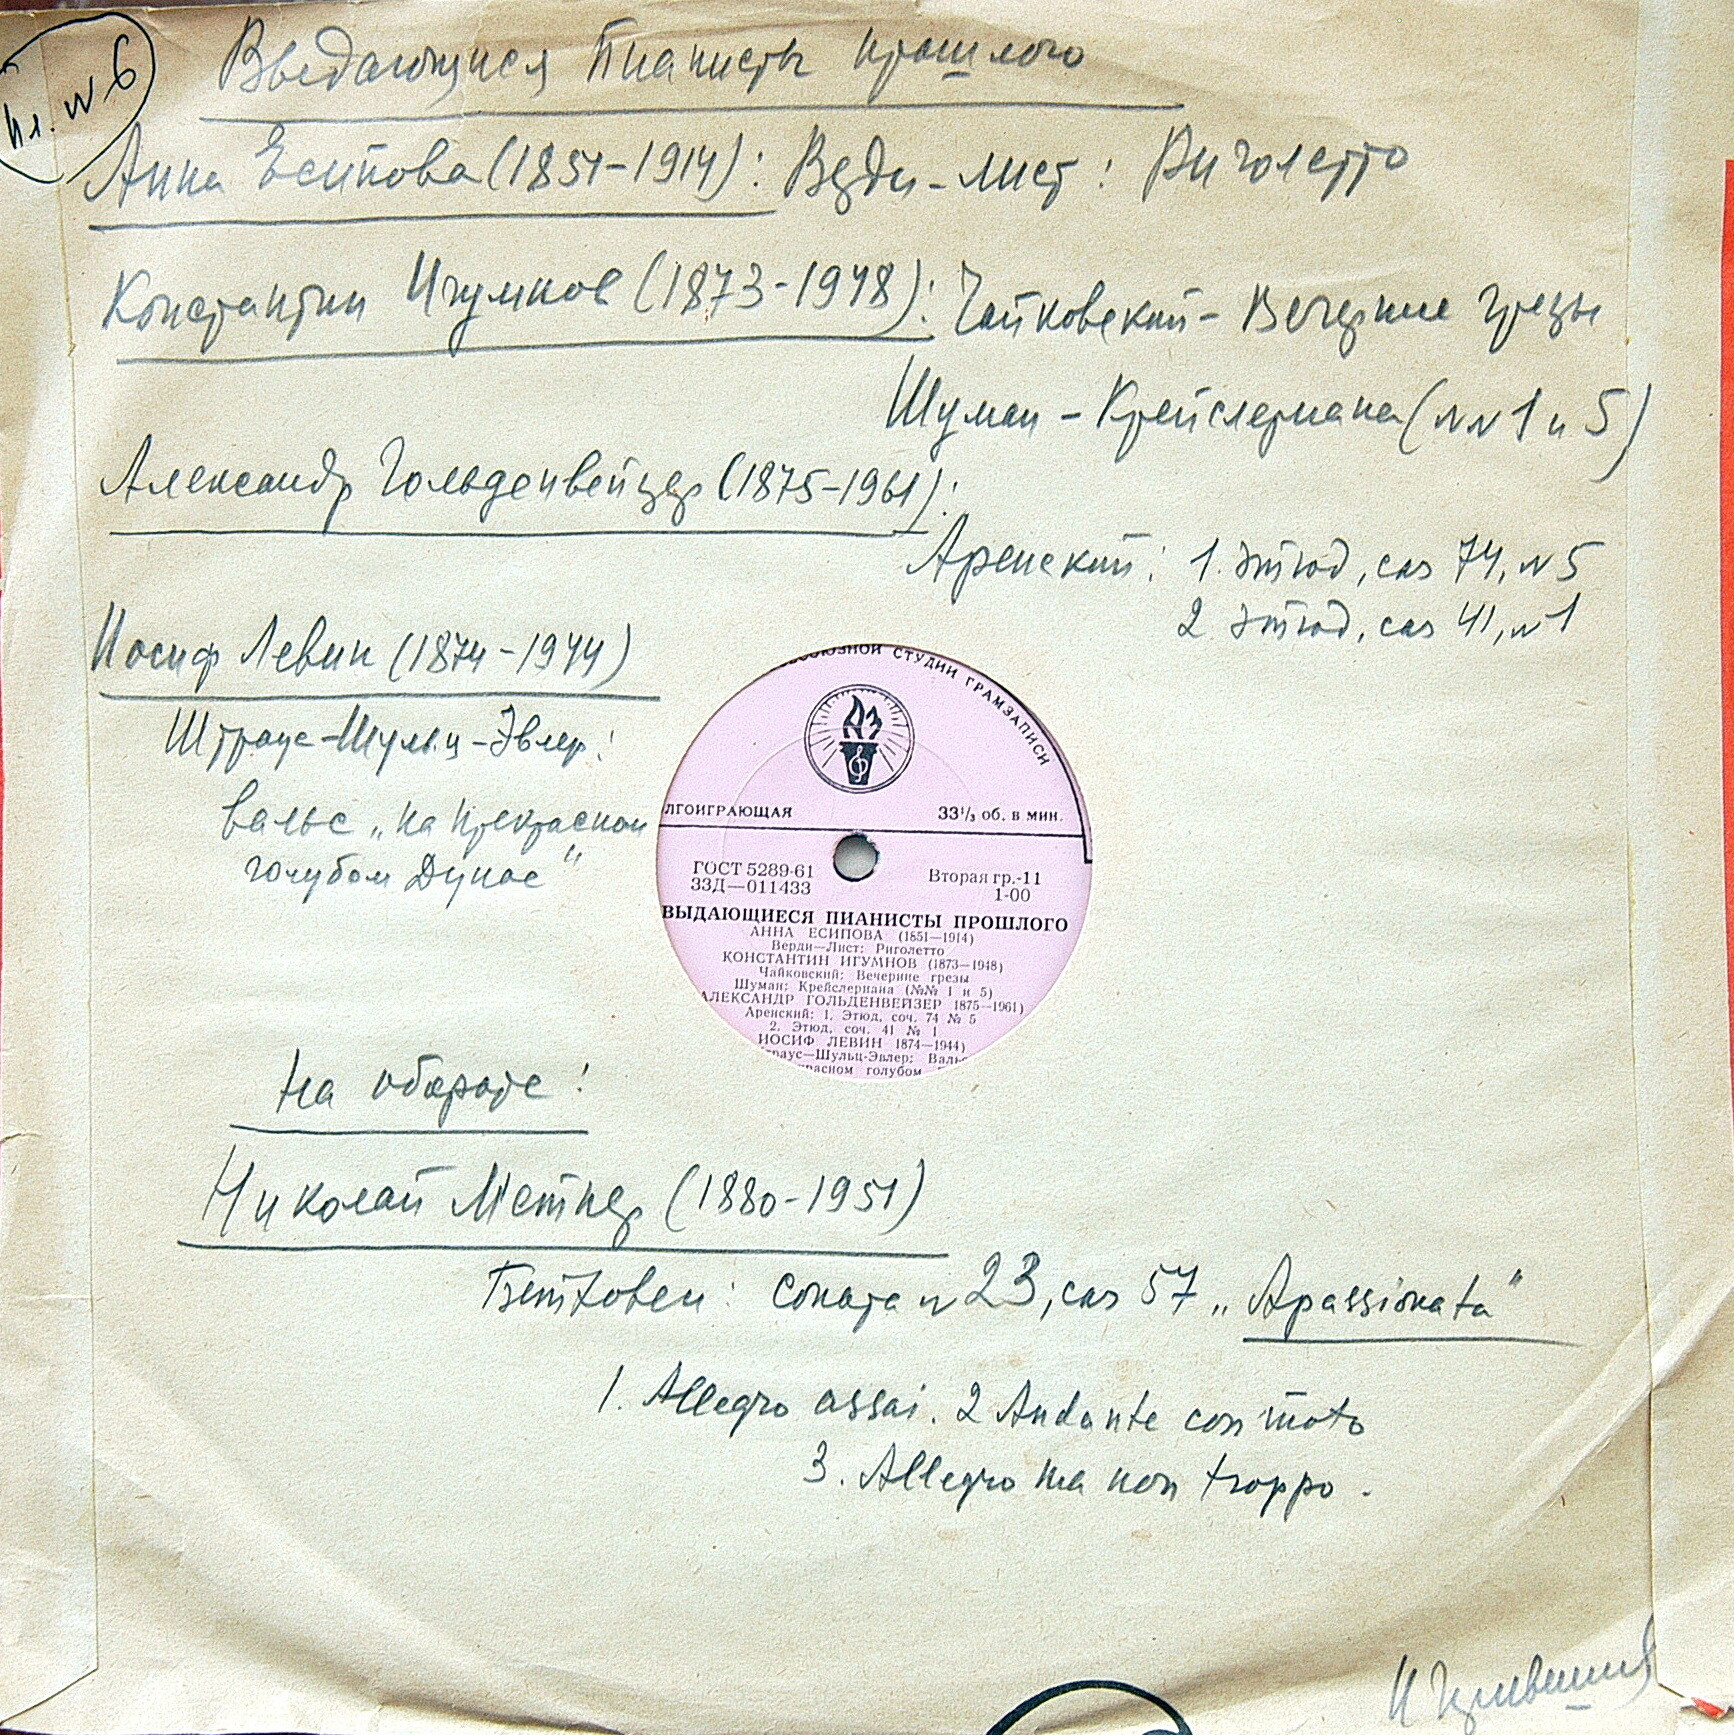 Пл. № 6
Выдающиеся Пианисты прошлого
Анна Есипова (1851-1914): Верди-Лист: Риголетто
Константин Игумнов (1873-1948): Чайковский - Вечерние грезы
Шуман - Крейслериана (№№ 1 и 5)
Александр Гольденвейзер (1875-1961):
Аренский: 1. Этюд, соч 74, № 5
2 Этюд, соч 41, № 1
Иосиф Левин (1874-1944)
Штраус-Шульц-Эвлер:
Вальс „На прекрасном
голубом Дунае"
ЗОЮЗНОЙ СТУДИИ ГРАМЗАПИСИ
ЛГОИГРАЮЩАЯ 33⅓ об. в мин.
ГОСТ 5289-61 Вторая гр.-11
33Д—011433 1-00
ВЫДАЮЩИЕСЯ ПИАНИСТЫ ПРОШЛОГО
АННА ЕСИПОВА (1851—1914)
Верди—Лист: Риголетто
КОНСТАНТИН ИГУМНОВ (1873—1948)
Чайковский: Вечерние грезы
Шуман: Крейслериана (№№ 1 и 5)
АЛЕКСАНДР ГОЛЬДЕНВЕЙЗЕР 1875—1961)
Аренский: 1. Этюд, соч. 74 № 5
2. Этюд, соч. 41 № 1
ИОСИФ ЛЕВИН 1874—1944)
траус—Шульц-Эвлер: Валь
красном голубом
На обороте:
Николай Метнер (1880-1951)
Бетховен: Соната № 23, соч 57 „Apassionata"
1. Allegro assai. 2 Andante con moto
3. Allegro ma non troppo.